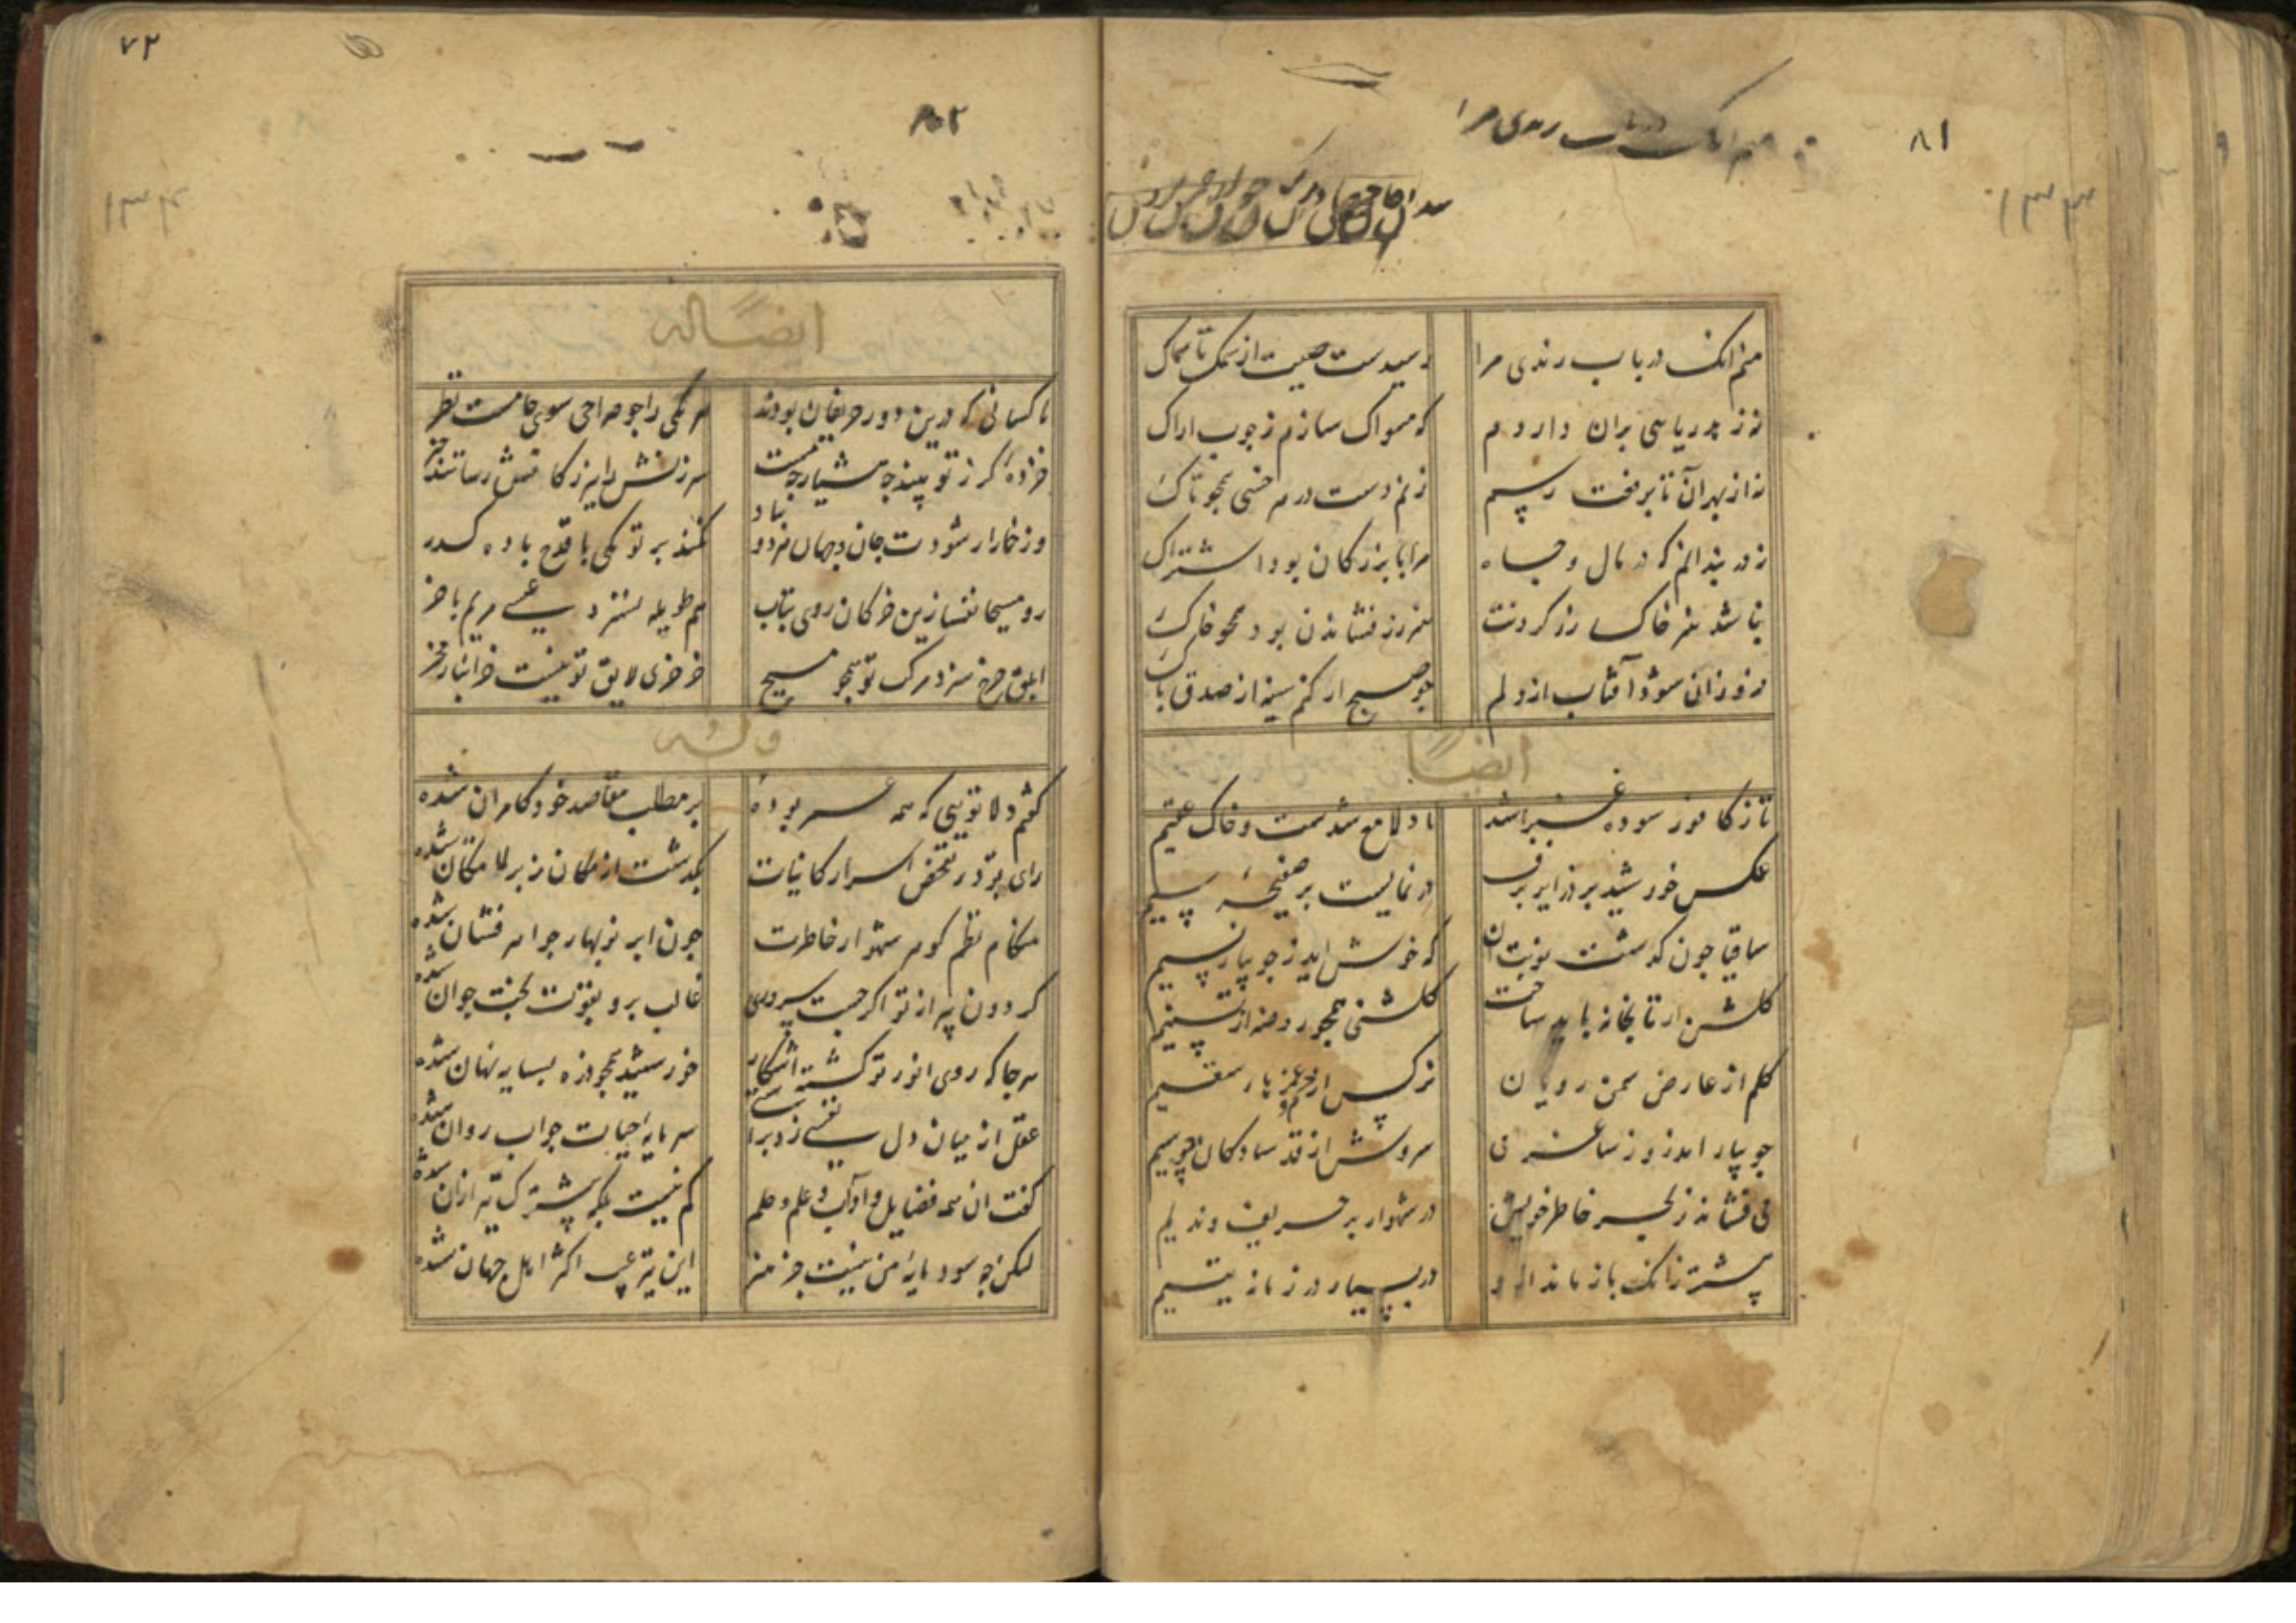 ۸۱
منم انک در باب رندی مرا
۱۳۳
منم انک در باب رندی مرا رسیدست صیت از سمک تا سماک
نه زهد ریایی بران داردم که مسواک سازم ز چوب اراک
نه از بهر آن تا بر فعت رسم زنم دست در هر خسی همچو تاک
نه در بند انم که در مال و جاه مرا با بزرکان بود اشتراک
نباشد هنر خاک رز کردنت هنر زر فشاندن بود همچو خاک
فروزان شود آفتاب از دلم چو صبح ار کنم سینه از صدق پاک
ایضاً
تا ز کافور سوده عنبر شد باد لامع شدست و خاک عقیم
عکس خورشید بر فراز برف در نمایست بر صفیحهٔ سیم
ساقیا چون کذشت نوبت ان که خوش اید ز جویبار نسیم
کلشن از تابخانه باید ساخت کلشنی همچو روضه از تسنیم
کلم از عارض سمن رویان نرکس از چشم و غمزه یار سقیم
جویبار اندرو ز ساغر می سروش از قد سادکان چو سیم
می فشاند ز بحر خاطر خویش در شهوار بر حریف و ندیم
پیشتر زانک باز ماند او در بسیار در زمانه یتیم
۷۲
۸۰۲
۱۳۴
ایضاً له
با کسانی که درین دور حریفان بودند هر یکی را چو صراحی سوی جامست نظر
خرده‌ کر ز تو بینند چه هشیار چه مست سرزنش را ز کافتش رسانند خبر
ور خمار ار شودت جان و جهان فرد و نماد نکنند بر تو یکی با قدح باده کذر
رو مسیحا نفسا زین خرکان روی بتاب هم طویله نسزد عیسی مریم با خر
ابلق چرخ سزد مرکب تو همچو مسیح خر خری لایق تو نیست خر انبار مخر
وله
کفتم دلا تویی که همه عمر بوده بر مطلب مقاصد خود کامران شده
رای تو در تفحص اسرار کاینات بکذشت از مکان زبر لا مکان شده
هنکام نظم کوهر شهوار خاطرت چون ابر نوبهار جواهر فشان شده
کردون پیر از تو اکر جست سروری غالب برو بقوت بخت جوان شده
هر جا که روی انور تو کشته اشکار خورشید همچو ذره بسایه نهان شده
عقل از میان دل نفسی زد برا ستی سرمایه حیات چو اب روان شده
کفت ان همه فضایل و آداب و علم و حلم کم نیست بلکه پیشترک نیز ازان شده
لیکن چه سود مایهٔ من نیست جز هنر این نیز عیب اکثر اهل جهان شده